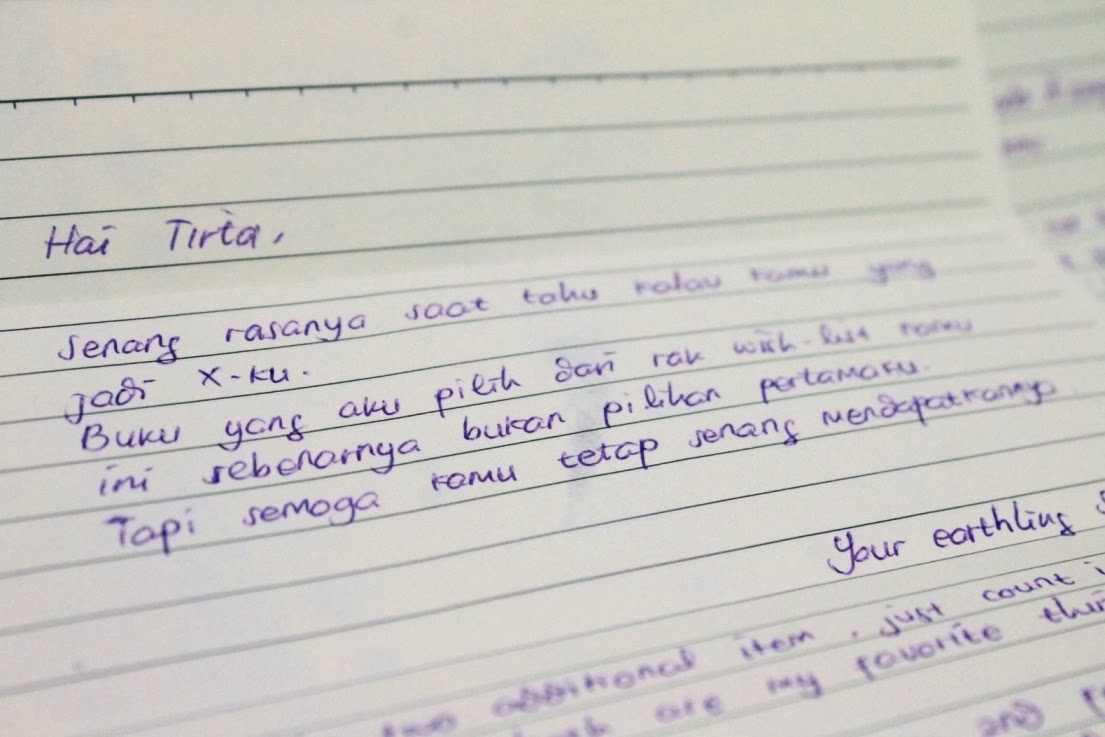 Hai Tirta,
senang rasanya saat tahu kalau kamu yang
jadi X-ku.
Buku yang aku pilih dari rak wish-list kamu
ini sebenarnya bukan pilihan pertamaku.
Tapi semoga kamu tetap senang mendapatkannya.
Your earthling
two additional item, just count
are my favorite
and